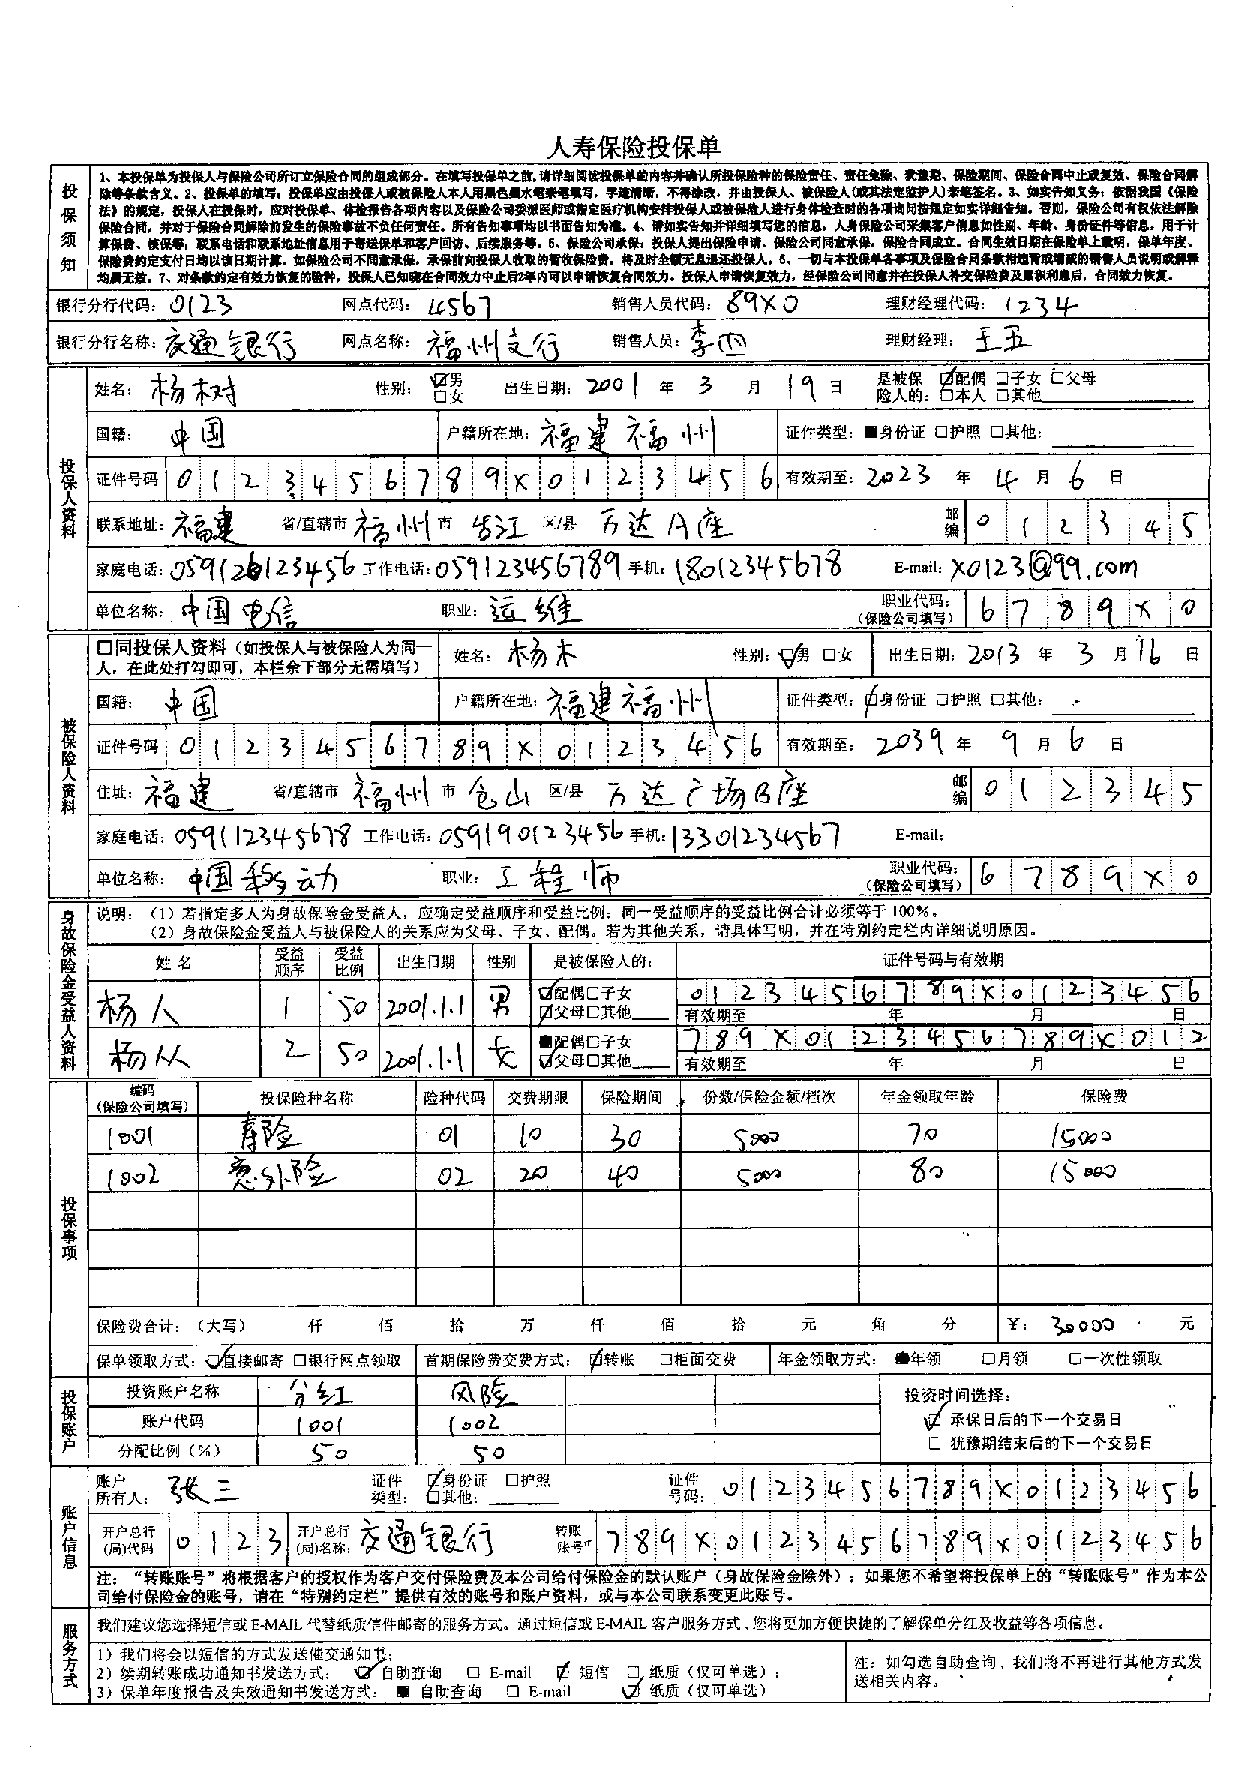 人寿保险投保单
投保须知
1、本投保单为投保人与保险公司所订立保险合同的组成部分。在填写投保单之前,请详细阅读投保单的内容并确认所投保险种的保险责任、责任免除、犹豫期、保险期间、保险合同中止或复效、保险合同解
除等条款含义。2、投保单的填写:投保单应由投保人或被保险人本人用黑色墨水笔亲笔填写,字迹清晰,不得涂改,并由投保人、被保险人(或其法定监护人)亲笔签名。3、如实告知义务:依据我国《保险
法》的规定,投保人在投保时,应对投保单、体检报告各项内容以及保险公司委派医师或指定医疗机构安排投保人或被保险人进行身体检查时的各项询问按规定如实详细告知。否则,保险公司有权依法解除
保险合同,并对于保险合同解除前发生的保险事故不负任何责任。所有告知事项均以书面告知为准。4、请如实告知并详细填写您的信息,人身保险公司采集客户信息如性别、年龄、身份证件等信息,用于计
算保费、核保等;联系电话和联系地址信息用于寄送保单和客户回访、后续服务等。5、保险公司承保:投保人提出保险申请、保险公司同意承保,保险合同成立。合同生效日期在保险单上载明,保单年度、
保险费约定支付日均以该日期计算。如保险公司不同意承保,承保前向投保人收取的暂收保险费,将及时全额无息退还投保人。6、一切与本投保单各事项及保险合同条款相违背或增减的销售人员说明或解释
均属无效。7、对条款约定有效力恢复的险种,投保人已知晓在合同效力中止后2年内可以申请恢复合同效力。投保人申请恢复效力,经保险公司同意并在投保人补交保险费及累积利息后,合同效力恢复。
银行分行代码: 0123 网点代码: 4567 销售人员代码: 89X0 理财经理代码: 1234
银行分行名称: 交通银行 网点名称: 福州支行 销售人员: 李四 理财经理: 王五
投保人资料
姓名: 杨树 性别: ☑男 □女 出生日期: 2001 年 3 月 19 日 是被保险人的: ☑配偶 □子女 □父母 □本人 □其他
国籍: 中国 户籍所在地: 福建福州 证件类型: ■身份证 □护照 □其他:
证件号码 0123456789X0123456 有效期至: 2023 年 4 月 6 日
联系地址: 福建 省/直辖市 福州 市 台江 区/县 万达A座 邮编 012345
家庭电话: 工作电话: 059123456789 手机: 18012345678 E-mail: X0123@qq.com
单位名称: 中国电信 职业: 运维 职业代码: (保险公司填写) 6789X0
被保险人资料
□同投保人资料(如投保人与被保险人为同一人,在此处打勾即可,本栏余下部分无需填写) 姓名: 杨木 性别: ☑男 □女 出生日期: 2013 年 3 月 16 日
国籍: 中国 户籍所在地: 福建福州 证件类型: ☑身份证 □护照 □其他:
证件号码 0123456789X0123456 有效期至: 2039 年 9 月 6 日
住址: 福建 省/直辖市 福州 市 仓山 区/县 万达广场B座 邮编 012345
家庭电话: 059112345678 工作电话: 059190123456 手机: 13301234567 E-mail:
单位名称: 中国移动 职业: 工程师 职业代码: (保险公司填写) 6789X0
身故保险金受益人资料
说明:(1)若指定多人为身故保险金受益人,应确定受益顺序和受益比例;同一受益顺序的受益比例合计必须等于100%。
(2)身故保险金受益人与被保险人的关系应为父母、子女、配偶。若为其他关系,请具体写明,并在特别约定栏内详细说明原因。
姓名 受益顺序 受益比例 出生日期 性别 是被保险人的: 证件号码与有效期
杨人 1 50 2001.1.1 男 ☑配偶□子女 ☑父母□其他 0123456789X0123456 有效期至 年 月 日
杨从 2 50 2001.1.1 女 ■配偶□子女 ☑父母□其他 789X0123456789X012 有效期至 年 月 日
投保事项
编码(保险公司填写) 投保险种名称 险种代码 交费期限 保险期间 份数/保险金额/档次 年金领取年龄 保险费
1001 寿险 01 10 30 5000 70 15000
1002 意外险 02 20 40 5000 80 15000
保险费合计:(大写) 仟 佰 拾 万 仟 佰 拾 元 角 分 ¥: 30000 元
保单领取方式: ☑直接邮寄 □银行网点领取 首期保险费交费方式: ☑转账 □柜面交费 年金领取方式: ■年领 □月领 □一次性领取
投保账户
投资账户名称 分红 风险 投资时间选择:
账户代码 1001 1002 ☑ 承保日后的下一个交易日
分配比例(%) 50 50 □ 犹豫期结束后的下一个交易日
账户信息
账户所有人: 张三 证件类型: ☑身份证 □护照 □其他: 证件号码: 0123456789X0123456
开户总行(局)代码 0123 开户总行(局)名称: 交通银行 转账账号 789X0123456789X0123456
注:“转账账号”将根据客户的授权作为客户交付保险费及本公司给付保险金的默认账户(身故保险金除外);如果您不希望将投保单上的“转账账号”作为本公
司给付保险金的账号,请在“特别约定栏”提供有效的账号和账户资料,或与本公司联系变更此账号。
服务方式
我们建议您选择短信或E-MAIL代替纸质信件邮寄的服务方式。通过短信或E-MAIL客户服务方式,您将更加方便快捷的了解保单分红及收益等各项信息。
1)我们将会以短信的方式发送催交通知书;
2)续期转账成功通知书发送方式: ☑自助查询 □ E-mail ☑ 短信 □ 纸质(仅可单选);
3)保单年度报告及失效通知书发送方式: ■ 自助查询 □ E-mail ☑ 纸质(仅可单选)
注:如勾选自助查询,我们将不再进行其他方式发
送相关内容。